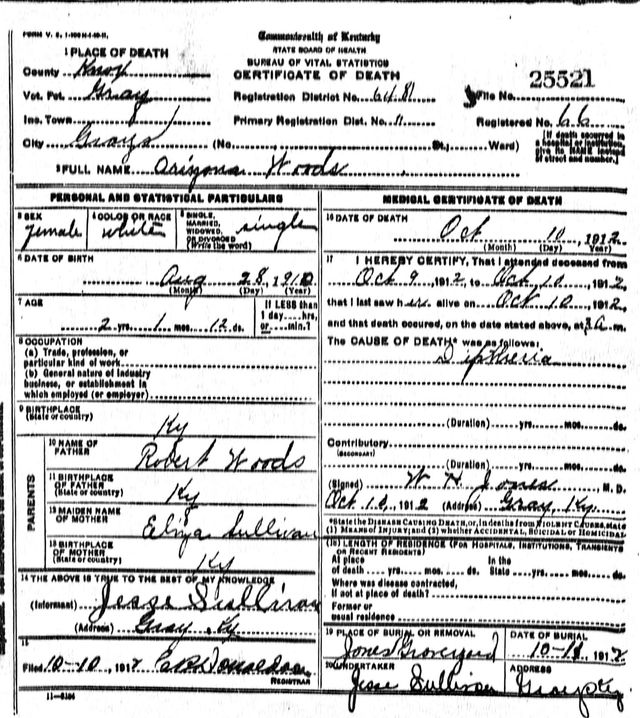 FORM V. S. 1-
Commonwealth of Kentucky
STATE BOARD OF HEALTH
BUREAU OF VITAL STATISTICS
CERTIFICATE OF DEATH
1 PLACE OF DEATH
County Knox
Vot. Pct. Gray
Inc. Town
City Grays (No. St., Ward)
Registration District No. 6481
Primary Registration Dist. No. 11
25521
File No.
Registered No. 66
[If death occurred in a hospital or institution, give its NAME instead of street and number.]
2 FULL NAME Arizona Woods
PERSONAL AND STATISTICAL PARTICULARS
3 SEX female
4 COLOR OR RACE white
5 SINGLE, MARRIED, WIDOWED, OR DIVORCED (Write the word) single
6 DATE OF BIRTH
Aug 28 1910
(Month) (Day) (Year)
7 AGE
2 yrs. 1 mos. 12 ds.
If LESS than 1 day....hrs. or....min.?
8 OCCUPATION
(a) Trade, profession, or particular kind of work
(b) General nature of industry business, or establishment in which employed (or employer)
9 BIRTHPLACE (State or country) Ky
PARENTS
10 NAME OF FATHER Robert Woods
11 BIRTHPLACE OF FATHER (State or country) Ky
12 MAIDEN NAME OF MOTHER Eliza Sullivan
13 BIRTHPLACE OF MOTHER (State or country) Ky
14 THE ABOVE IS TRUE TO THE BEST OF MY KNOWLEDGE
(Informant) Jesse Sullivan
(Address) Gray, Ky
15
Filed 10-10, 1912
REGISTRAR
11-
MEDICAL CERTIFICATE OF DEATH
16 DATE OF DEATH
Oct 10, 1912
(Month) (Day) (Year)
17 I HEREBY CERTIFY, That I attended deceased from
Oct 9, 1912, to Oct 10, 1912,
that I last saw her alive on Oct 10, 1912,
and that death occured, on the date stated above, at 3 a m.
The CAUSE OF DEATH* was as follows:
Diptheria
(Duration) yrs. mos. ds.
Contributory
(SECONDARY)
(Duration) yrs. mos. ds.
(Signed) W H Jones, M. D.
Oct 10, 1912 (Address) Gray, Ky.
*State the DISEASE CAUSING DEATH, or, in deaths from VIOLENT CAUSES, state (1) MEANS OF INJURY; and (2) whether ACCIDENTAL, SUICIDAL or HOMICIDAL
18 LENGTH OF RESIDENCE (FOR HOSPITALS, INSTITUTIONS, TRANSIENTS OR RECENT RESIDENTS)
At place of death yrs. mos. ds. In the State yrs. mos. ds.
Where was disease contracted, if not at place of death?
Former or usual residence
19 PLACE OF BURIAL OR REMOVAL
Jones Graveyard
DATE OF BURIAL
10-11, 1912
20 UNDERTAKER
Jesse Sullivan
ADDRESS
Gray, Ky